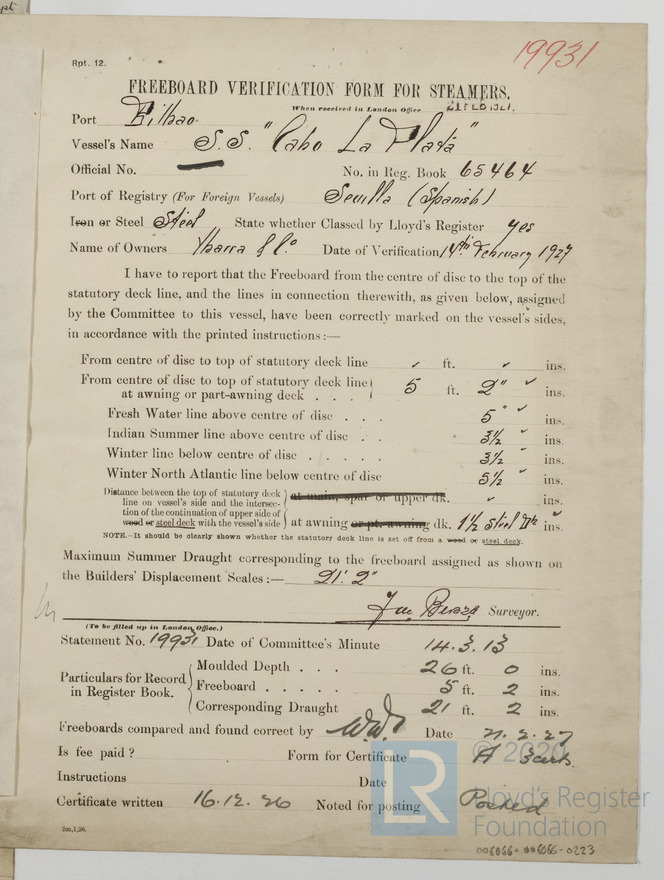 Rpt. 12.
19931
FREEBOARD VERIFICATION FORM FOR STEAMERS.
When received in London Office
Port Bilbao
Vessel's Name S.S. "Cabo La Plata"
Official No. No. in Reg. Book 65464
Port of Registry (For Foreign Vessels) Sevilla (Spanish)
Iron or Steel Steel State whether Classed by Lloyd's Register yes
Name of Owners Ybarra & Co Date of Verification 14th February 1927
I have to report that the Freeboard from the centre of disc to the top of the
statutory deck line, and the lines in connection therewith, as given below, assigned
by the Committee to this vessel, have been correctly marked on the vessel's sides,
in accordance with the printed instructions :—
From centre of disc to top of statutory deck line ft. ins.
From centre of disc to top of statutory deck line
at awning or part-awning deck . . . 5 ft. 2" ins.
Fresh Water line above centre of disc . . . 5" ins.
Indian Summer line above centre of disc . . 3½ ins.
Winter line below centre of disc . . . . . 3½ ins.
Winter North Atlantic line below centre of disc 5½ ins.
Distance between the top of statutory deck
line on vessel's side and the intersec-
tion of the continuation of upper side of
wood or steel deck with the vessel's side
at main, spar or upper dk. ins.
at awning or pt. awning dk. 1½ Steel Dk ins.
NOTE.—It should be clearly shown whether the statutory deck line is set off from a wood or steel deck.
Maximum Summer Draught corresponding to the freeboard assigned as shown on
the Builders' Displacement Scales :— 21' 2"
Surveyor.
(To be filled up in London Office.)
Statement No. 19931 Date of Committee's Minute 14.3.13
Particulars for Record
in Register Book.
Moulded Depth . . . 26 ft. 0 ins.
Freeboard . . . . . 5 ft. 2 ins.
Corresponding Draught 21 ft. 2 ins.
Freeboards compared and found correct by Date 21.2.27
Is fee paid ? Form for Certificate A
Instructions Date
Certificate written 16.12.26 Noted for posting Posted
2m,1,26.
© 2020
LR
Lloyd's Register
Foundation
006066-006066-0223